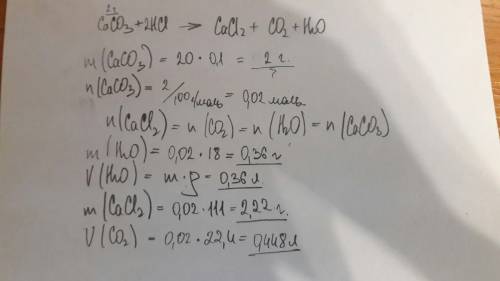 2г
CaCO₃ + 2HCl → CaCl₂ + CO₂ + H₂O
m(CaCO₃) = 20 · 0,1 = 2 г.
?
n(CaCO₃) = 2/100 г/моль = 0,02 моль
n(CaCl₂) = n(CO₂) = n(H₂O) = n(CaCO₃)
m(H₂O) = 0,02 · 18 = 0,36 г
V(H₂O) = m · ρ = 0,36 л
m(CaCl₂) = 0,02 · 111 = 2,22 г.
V(CO₂) = 0,02 · 22,4 = 0,448 л